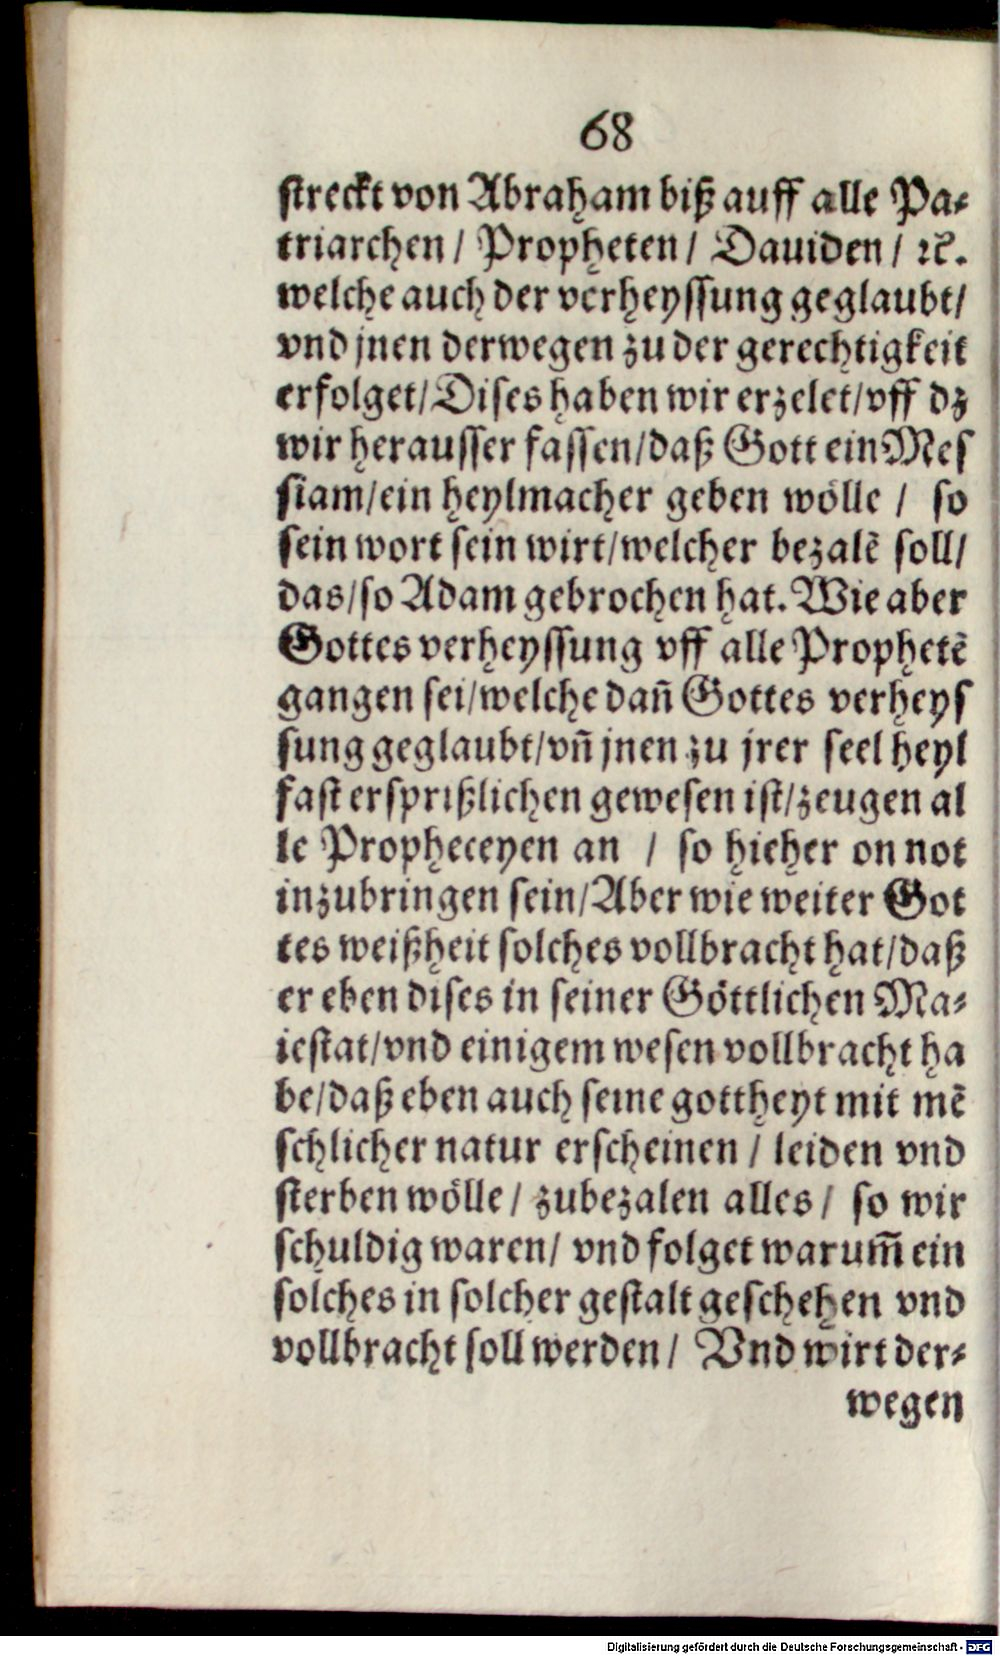 68
streckt von Abraham biß auff alle Pa-
triarchen / Propheten / Dauiden / ꝛc.
welche auch der verheyssung geglaubt/
vnd jnen derwegen zu der gerechtigkeit
erfolget/Dises haben wir erzelet/vff dz
wir herausser fassen/daß Gott ein Mes
siam/ein heylmacher geben wölle / so
sein wort sein wirt/welcher bezalẽ soll/
das/so Adam gebrochen hat. Wie aber
Gottes verheyssung vff alle Prophetẽ
gangen sei/welche dañ Gottes verheys
sung geglaubt/vñ jnen zu jrer seel heyl
fast ersprißlichen gewesen ist/zeugen al
le Propheceyen an / so hieher on not
inzubringen sein/Aber wie weiter Got
tes weißheit solches vollbracht hat/daß
er eben dises in seiner Göttlichen Ma-
iestat/vnd einigem wesen vollbracht ha
be/daß eben auch seine gottheyt mit mẽ
schlicher natur erscheinen / leiden vnd
sterben wölle / zubezalen alles / so wir
schuldig waren/ vnd folget warum̃ ein
solches in solcher gestalt geschehen vnd
vollbracht soll werden / Vnd wirt der-
wegen
Digitalisierung gefördert durch die Deutsche Forschungsgemeinschaft - DFG